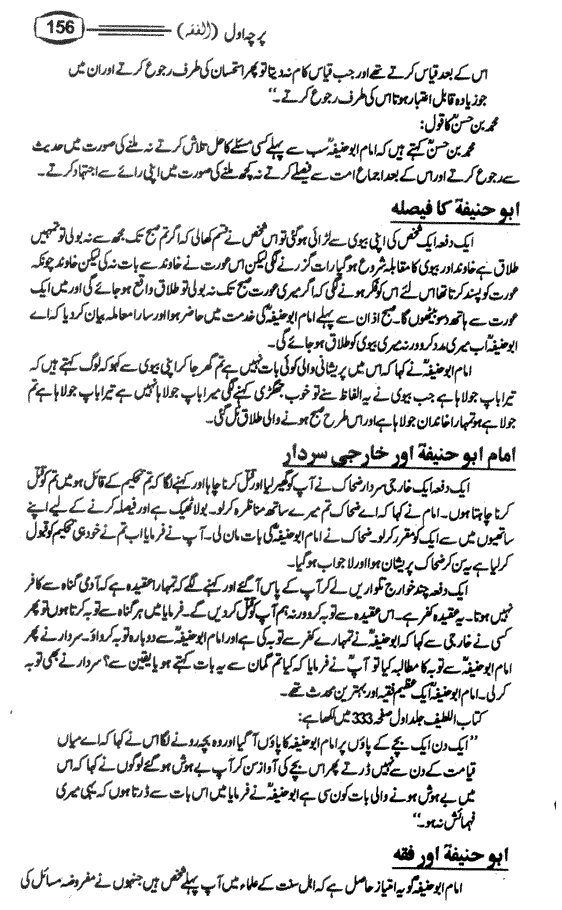 پرچہ اول (الفقہ) 156
اس کے بعد قیاس کرتے تھے اور جب قیاس کام نہ دیتا تو پھر استحسان کی طرف رجوع کرتے اور ان میں
جو زیادہ قابل اعتبار ہوتا اس کی طرف رجوع کرتے۔‘‘
محمد بن حسنؒ کا قول:
محمد بن حسنؒ کہتے ہیں کہ امام ابو حنیفہؒ سب سے پہلے کسی مسئلے کا حل تلاش کرتے نہ ملنے کی صورت میں حدیث
سے رجوع کرتے اور اس کے بعد اجماع امت سے فیصلے کرتے نہ کچھ ملنے کی صورت میں اپنی رائے سے اجتہاد کرتے۔
ابو حنیفةؒ کا فیصلہ
ایک دفعہ ایک شخص کی اپنی بیوی سے لڑائی ہو گئی تو اس شخص نے قسم کھالی کہ اگر تم صبح تک مجھ سے نہ بولی تو تمہیں
طلاق ہے خاوند اور بیوی کا مقابلہ شروع ہو گیا رات گزرنے لگی لیکن اس عورت نے خاوند سے بات نہ کی لیکن خاوند چونکہ
عورت کو پسند کرتا تھا اس لئے اس کو فکر ہونے لگی کہ اگر میری عورت صبح تک نہ بولی تو طلاق واقع ہو جائے گی اور میں ایک
عورت سے ہاتھ دھو بیٹھوں گا۔ صبح اذان سے پہلے امام ابو حنیفہؒ کی خدمت میں حاضر ہوا اور سارا معاملہ بیان کر دیا کہ اے
ابو حنیفہؒ اب میری مدد کرو ورنہ میری بیوی کو طلاق ہو جائے گی۔
امام ابو حنیفہؒ نے کہا کہ اس میں پریشانی والی کوئی بات نہیں ہے تم گھر جا کر اپنی بیوی سے کہو کہ لوگ کہتے ہیں کہ
تیرا باپ جولاہا ہے جب بیوی نے یہ الفاظ سنے تو خوب جھگڑی کہنے لگی میرا باپ جولاہا نہیں ہے تیرا باپ جولاہا ہے تم
جولاہے ہو تمہارا خاندان جولاہا ہے اور اس طرح صبح ہونے والی طلاق ٹل گئی۔
امام ابو حنیفةؒ اور خارجی سردار
ایک دفعہ ایک خارجی سردار ضحاک نے آپ کو گھیر لیا اور قتل کرنا چاہا اور کہنے لگا کہ تم تحکیم کے قائل ہو میں تم کو قتل
کرنا چاہتا ہوں۔ امام نے کہا کہ اے ضحاک تم میرے ساتھ مناظرہ کر لو۔ بولا ٹھیک ہے اور فیصلہ کرنے کے لیے اپنے
ساتھیوں میں سے ایک کو مقرر کر لو۔ ضحاک نے امام ابو حنیفہؒ کی بات مان لی۔ آپ نے فرمایا اب تم نے خود ہی تحکیم کو قبول
کر لیا ہے یہ سن کر ضحاک پریشان ہوا اور لاجواب ہو گیا۔
ایک دفعہ چند خوارج تلواریں لے کر آپ کے پاس آئے اور کہنے لگے کہ تمہارا عقیدہ ہے کہ آدمی گناہ سے کافر
نہیں ہوتا۔ یہ عقیدہ کفر ہے۔ اس عقیدہ سے توبہ کرو ورنہ ہم آپ کو قتل کر دیں گے۔ فرمایا میں ہر گناہ سے توبہ کرتا ہوں تو پھر
کسی نے خارجی سے کہا کہ ابو حنیفہؒ نے تمہارے کفر سے توبہ کی ہے اور امام ابو حنیفہؒ سے دوبارہ توبہ کرواؤ۔ سردار نے پھر
امام ابو حنیفہؒ سے توبہ کا مطالبہ کیا تو آپؒ نے فرمایا کہ کیا تم گمان سے یہ بات کہتے ہو یا یقین سے؟ سردار نے بھی توبہ
کر لی۔ امام ابو حنیفہؒ ایک عظیم فقیہ اور بہترین محدث تھے۔
کتاب اللطیف جلد اول صفحہ 333 میں لکھا ہے:
’’ایک دن ایک بچے کے پاؤں پر امام ابو حنیفہ کا پاؤں آ گیا اور وہ بچہ رونے لگا اس نے کہا کہ اے میاں
قیامت کے دن سے نہیں ڈرتے پھر اس بچے کی آواز سن کر آپ بے ہوش ہو گئے لوگوں نے کہا کہ اس
میں بے ہوش ہونے والی بات کون سی ہے ابو حنیفہؒ نے فرمایا میں اس بات سے ڈرتا ہوں کہ یہی میری
فہمائش نہ ہو۔‘‘
ابو حنیفةؒ اور فقہ
امام ابو حنیفہؒ کو یہ امتیاز حاصل ہے کہ اہل سنت کے علماء میں آپ پہلے شخص ہیں جنہوں نے مفروضہ مسائل کی